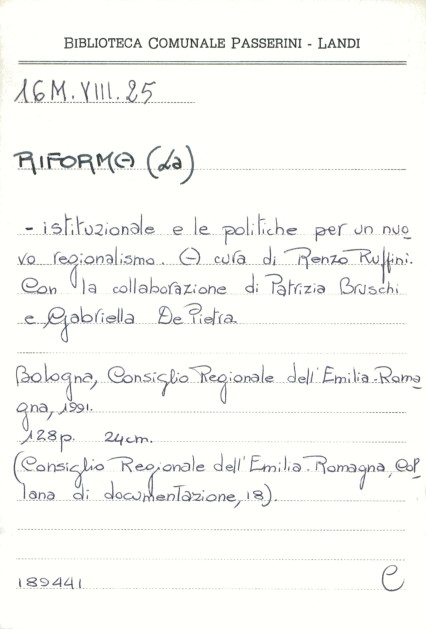 BIBLIOTECA COMUNALE PASSERINI - LANDI
16M.VIII.25
RIFORMA (La)
- istituzionale e le politiche per un nuo
vo regionalismo. A cura di Renzo Ruffini.
Con la collaborazione di Patrizia Bruschi
e Gabriella De Pietra.
Bologna, Consiglio Regionale dell'Emilia-Roma
gna, 1991.
128p. 24cm.
(Consiglio Regionale dell'Emilia-Romagna, Col
lana di documentazione, 18).
189441 C